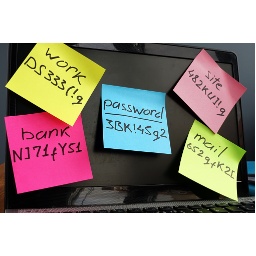 work
DS333!!g
password
3BK!4Sg2
site
482KUI!g
bank
NI71fYS1
mail
652gfK2I